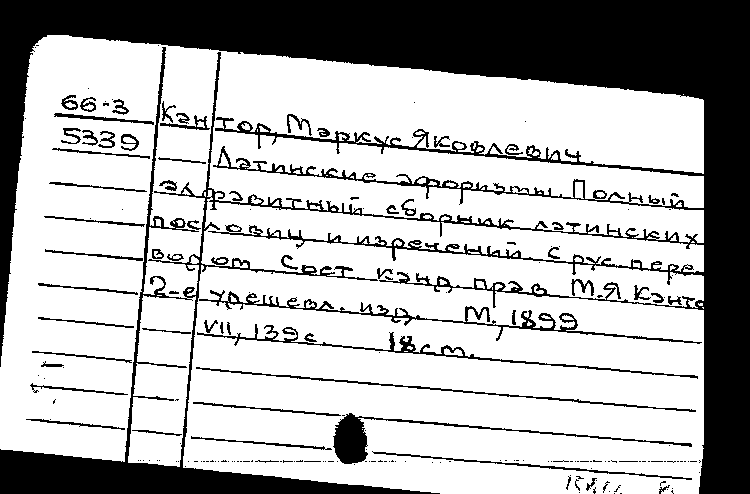 66-3 Кантор, Маркус Яковлевич.
5339 Латинские афоризмы. Полный
алфавитный сборник латинских
пословиц и изречений. С рус. пере-
водом. Сост. канд. прав М.Я. Канто
2-е удешевл. изд. М., 1899
VII, 139 с. 18 см.